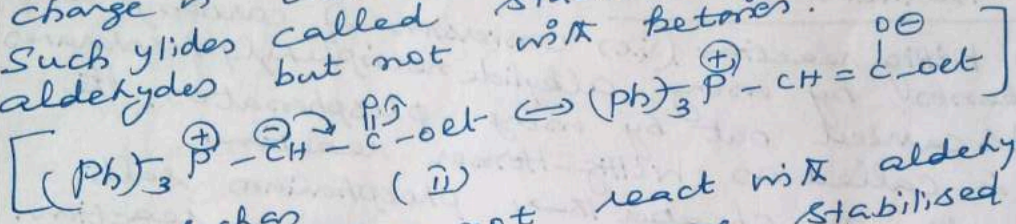 change
Such ylides called
aldehydes but not with ketones.
[(Ph)3 P⊕ - C⊖H - C(=O) - oet ⟷ (Ph)3 P⊕ - CH = C(O⊖) - oet]
(II)
react with aldehy
stabilised